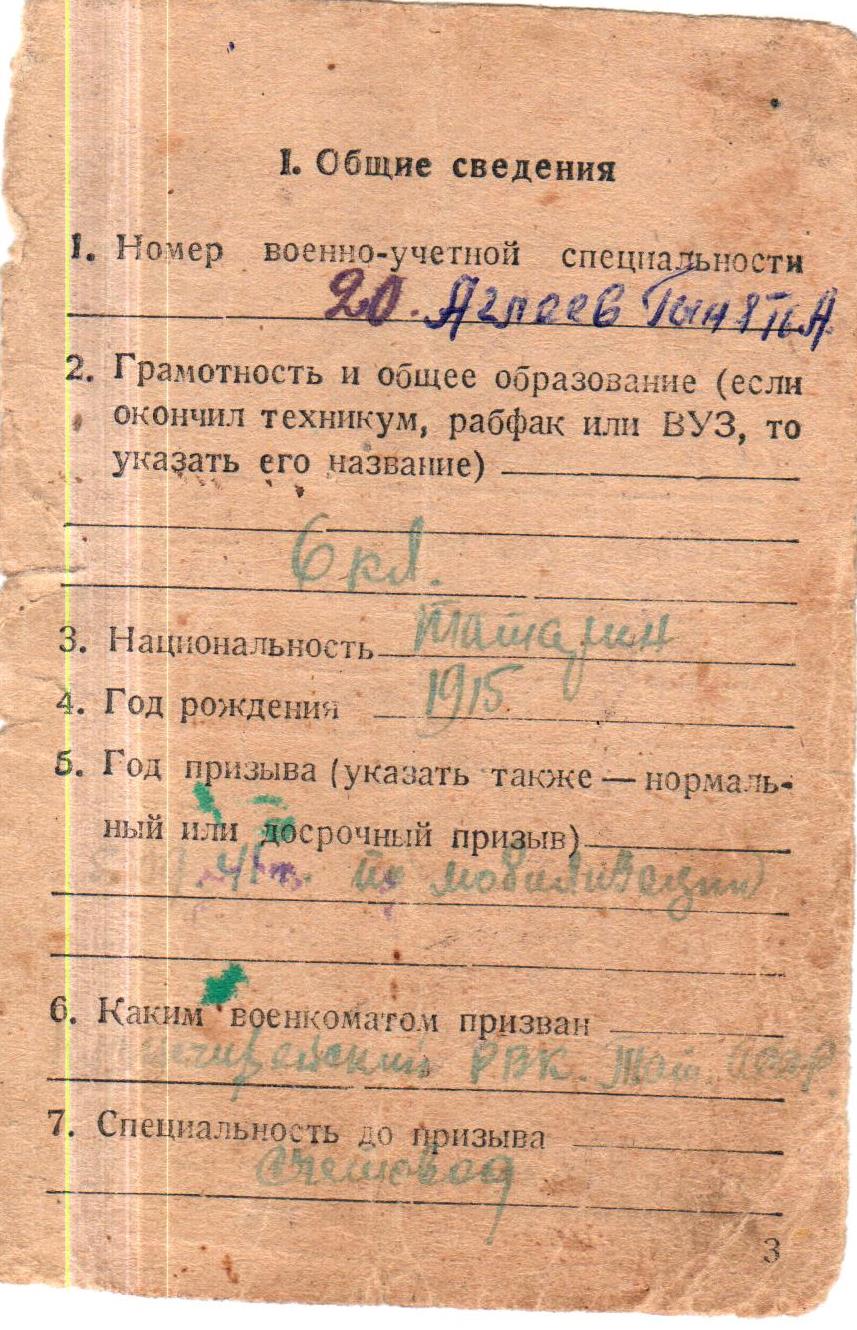 I. Общие сведения
1. Номер военно-учетной специальности
20.
2. Грамотность и общее образование (если
окончил техникум, рабфак или ВУЗ, то
указать его название)
6 кл.
3. Национальность Татарин
4. Год рождения 1915
5. Год призыва (указать также — нормаль-
ный или досрочный призыв)
по мобилизации
6. Каким военкоматом призван
РВК. Тат. АССР.
7. Специальность до призыва
Счетовод
3